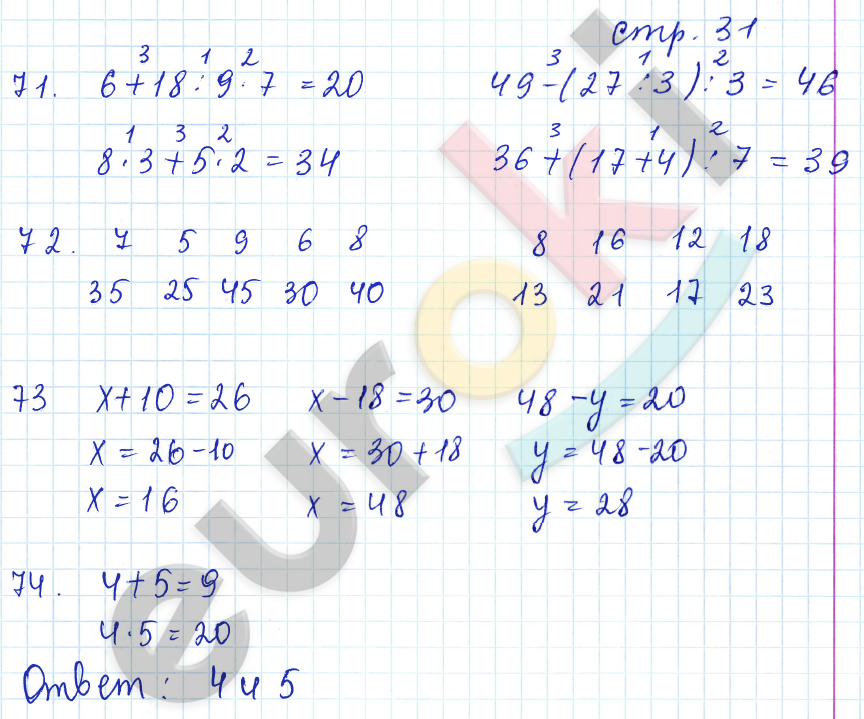 стр. 31
3 1 2 3 1 2
71. 6+18:9·7 = 20 49-(27:3):3 = 46
1 3 2 3 1 2
8·3+5·2 = 34 36+(17+4):7 = 39
72. 7 5 9 6 8 8 16 12 18
35 25 45 30 40 13 21 17 23
73 x+10=26 x-18=30 48-y=20
x = 26-10 x = 30+18 y = 48-20
x = 16 x = 48 y = 28
74. 4+5=9
4·5=20
Ответ: 4 и 5
euroki